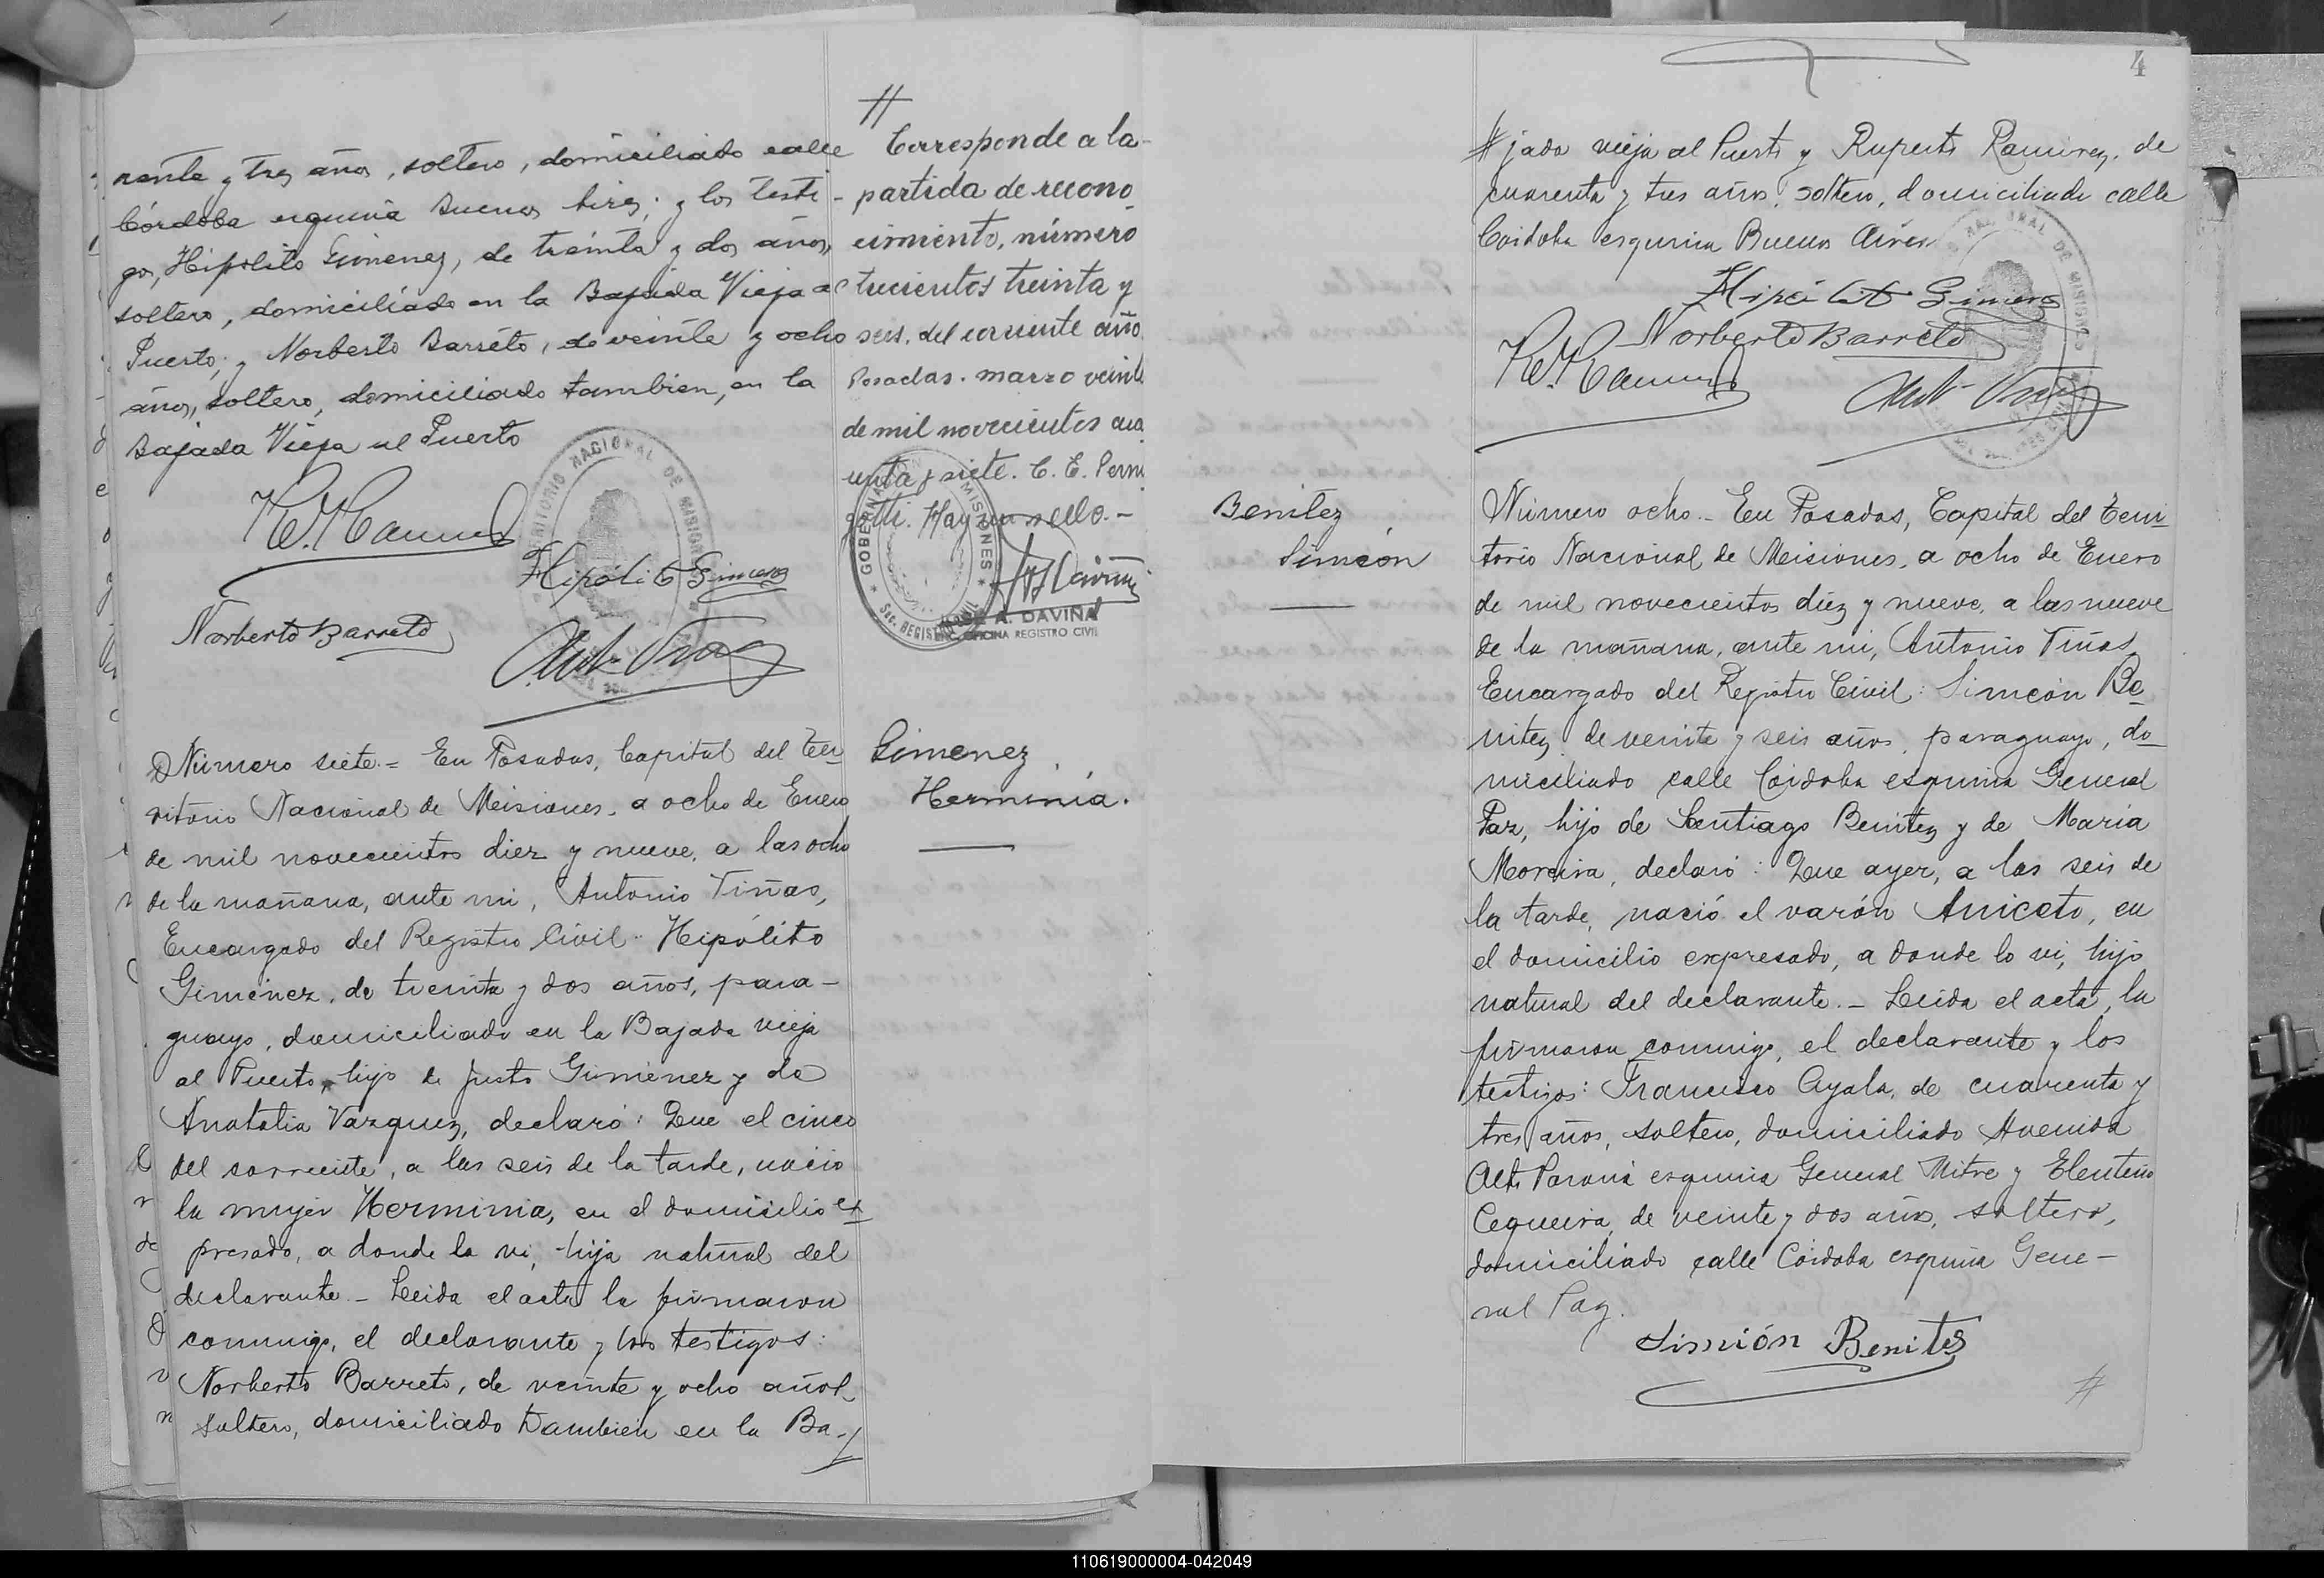 renta y tres años, soltero, domiciliado calle
Córdoba esquina Buenos Aires; y los testi-
gos, Hipólito Gimenez, de treinta y dos años,
soltero, domiciliado en la Bajada Vieja al
Puerto; y Norberto Barreto, de veinte y ocho
años, soltero, domiciliado tambien, en la
Bajada Vieja al Puerto
Hipólito Gimenez
Norberto Barreto
TERRITORIO NACIONAL DE MISIONES
//
Corresponde a la
partida de recono
cimiento, número
trecientos treinta y
seis, del corriente año
Posadas. marzo veinte
de mil novecientos cua
renta y siete. C. E. Perni
gotti. Hay un sello.-
GOBERNACION MISIONES
Sec. REGISTRO
JOSE A. DAVIÑA
OFICINA REGISTRO CIVIL
Número siete.= En Posadas, Capital del Ter
ritorio Nacional de Misiones, a ocho de Enero
de mil novecientos diez y nueve, a las ocho
de la mañana, ante mi, Antonio Tiñas,
Encargado del Registro Civil: Hipólito
Giménez, de treinta y dos años, para-
guayo, domiciliado en la Bajada vieja
al Puerto, hijo de Justo Giménez y de
Anatalia Vazquez, declaró: Que el cinco
del corriente, a las seis de la tarde, nació
la mujer Herminia, en el domicilio ex
presado, a donde la vi, hija natural del
declarante.- Leida el acta la firmaron
conmigo, el declarante y los testigos:
Norberto Barreto, de veinte y ocho años,
soltero, domiciliado tambien en la Ba-//
Gimenez
Herminia.
4
// jada vieja al Puerto y Ruperto Ramirez, de
cuarenta y tres años, soltero, domiciliado calle
Córdoba esquina Buenos Aires
Hipólito Gimenez
Norberto Barreto
NACIONAL DE MISIONES
Benitez
Simeón
Número ocho.- En Posadas, Capital del Terri
torio Nacional de Misiones, a ocho de Enero
de mil novecientos diez y nueve, a las nueve
de la mañana, ante mi, Antonio Tiñas,
Encargado del Registro Civil: Simeón Be
nitez, de veinte y seis años, paraguayo, do
miciliado calle Córdoba esquina General
Paz, hijo de Santiago Benítez y de María
Moreira, declaró: Que ayer, a las seis de
la tarde, nació el varón Aniceto, en
el domicilio expresado, a donde lo vi, hijo
natural del declarante.- Leida el acta, la
firmaron conmigo, el declarante y los
testigos: Francisco Ayala, de cuarenta y
tres años, soltero, domiciliado Avenida
Alto Paraná esquina General Mitre y Eleuterio
Cequeira, de veinte y dos años, soltero,
domiciliado calle Córdoba esquina Gene-
ral Paz.
Simión Benites
//
110619000004-042049